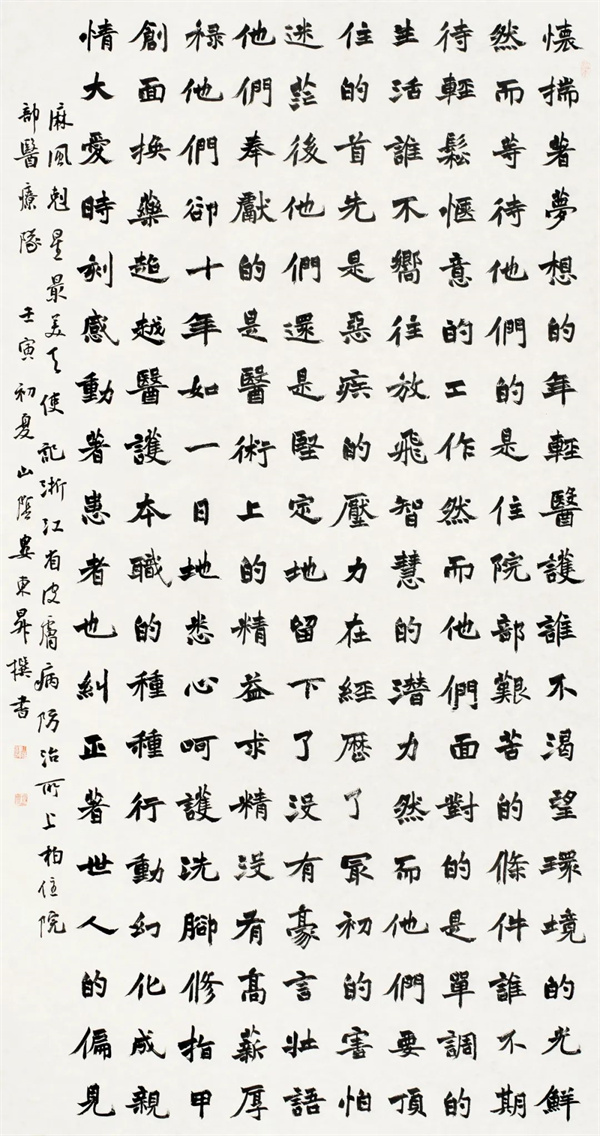 懷揣著夢想的年輕醫護誰不渴望環境的光鮮
然而等待他們的是住院部艱苦的條件誰不期
待輕鬆愜意的工作然而他們面對的是單調的
生活誰不嚮往放飛智慧的潛力然而他們要頂
住的首先是惡疾的壓力在經歷了冣初的害怕
迷茫後他們還是堅定地留下了沒有豪言壯語
他們奉獻的是醫術上的精益求精沒有高薪厚
祿他們卻十年如一日地悉心呵護洗腳修指甲
創面換藥超越醫護本職的種種行動幻化成親
情大愛時刻感動著患者也糾正著世人的偏見
麻風剋星最美天使記浙江省皮膚病防治所上柏住院
部醫療隊 壬寅初夏山陰婁東昇撰書